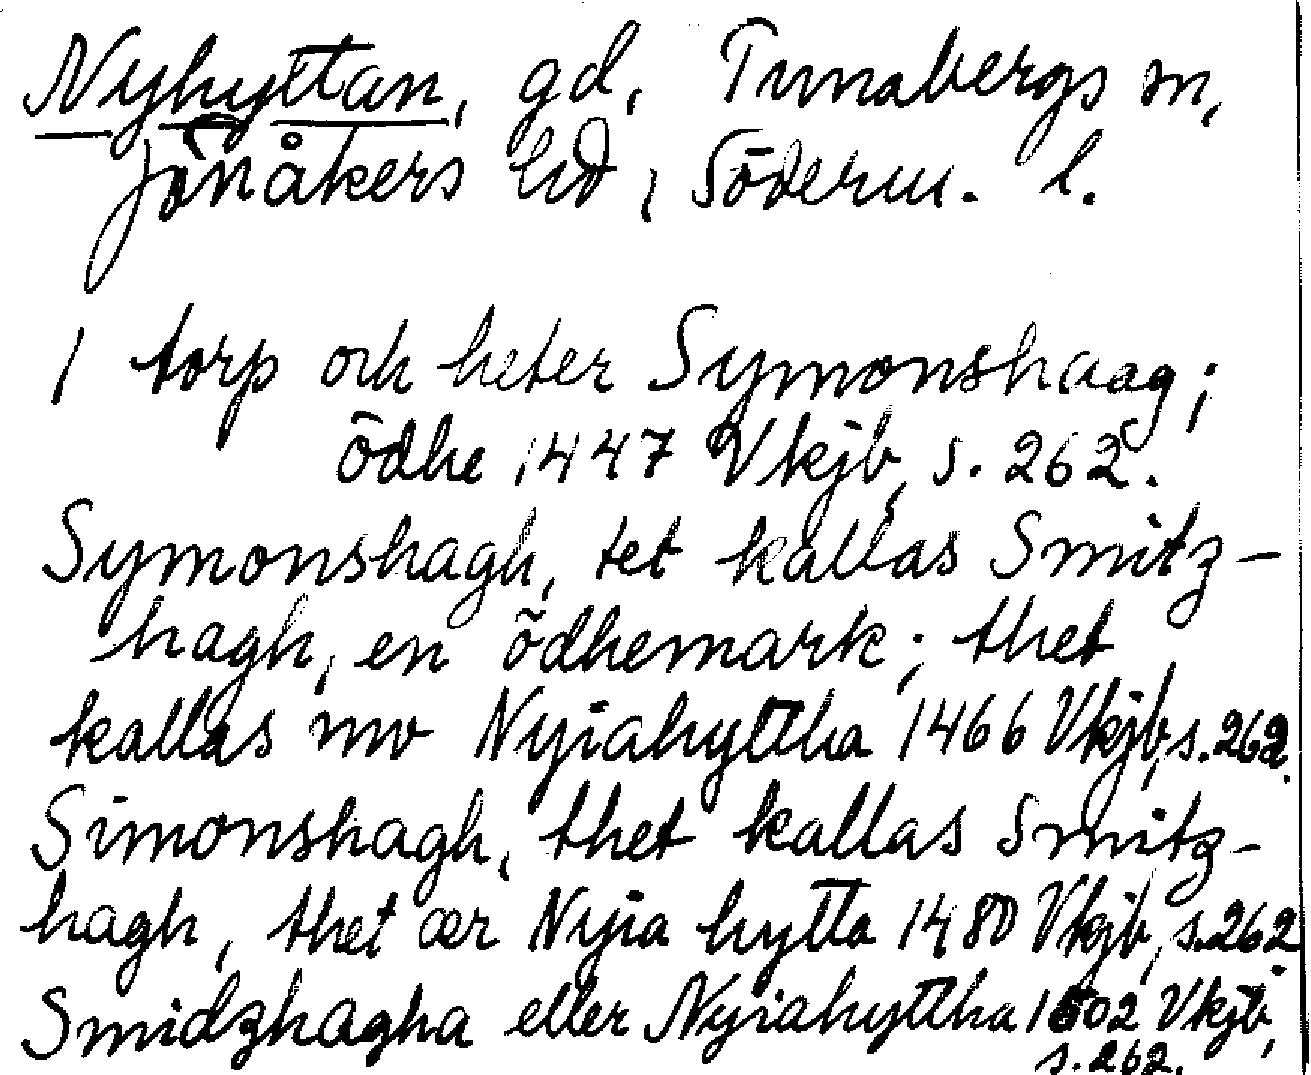 Nyhyttan, gd, Tunabergs sn,
Jönåkers hd, Söderm. l.
1 torp och heter Symonshaag;
ödhe 1447 Vkjb, s. 262.
Symonshagh, tet kallas Smitz-
hagh, en ödhemark; thet
kallas nw Nyiahyttha 1466 Vkjb, s. 262.
Simonshagh, thet kallas Smitz-
hagh, thet ær Nyia hytta 1480 Vkjb, s. 262
Smidzhagha eller Nyiahyttha 1502 Vkjb,
s. 262.